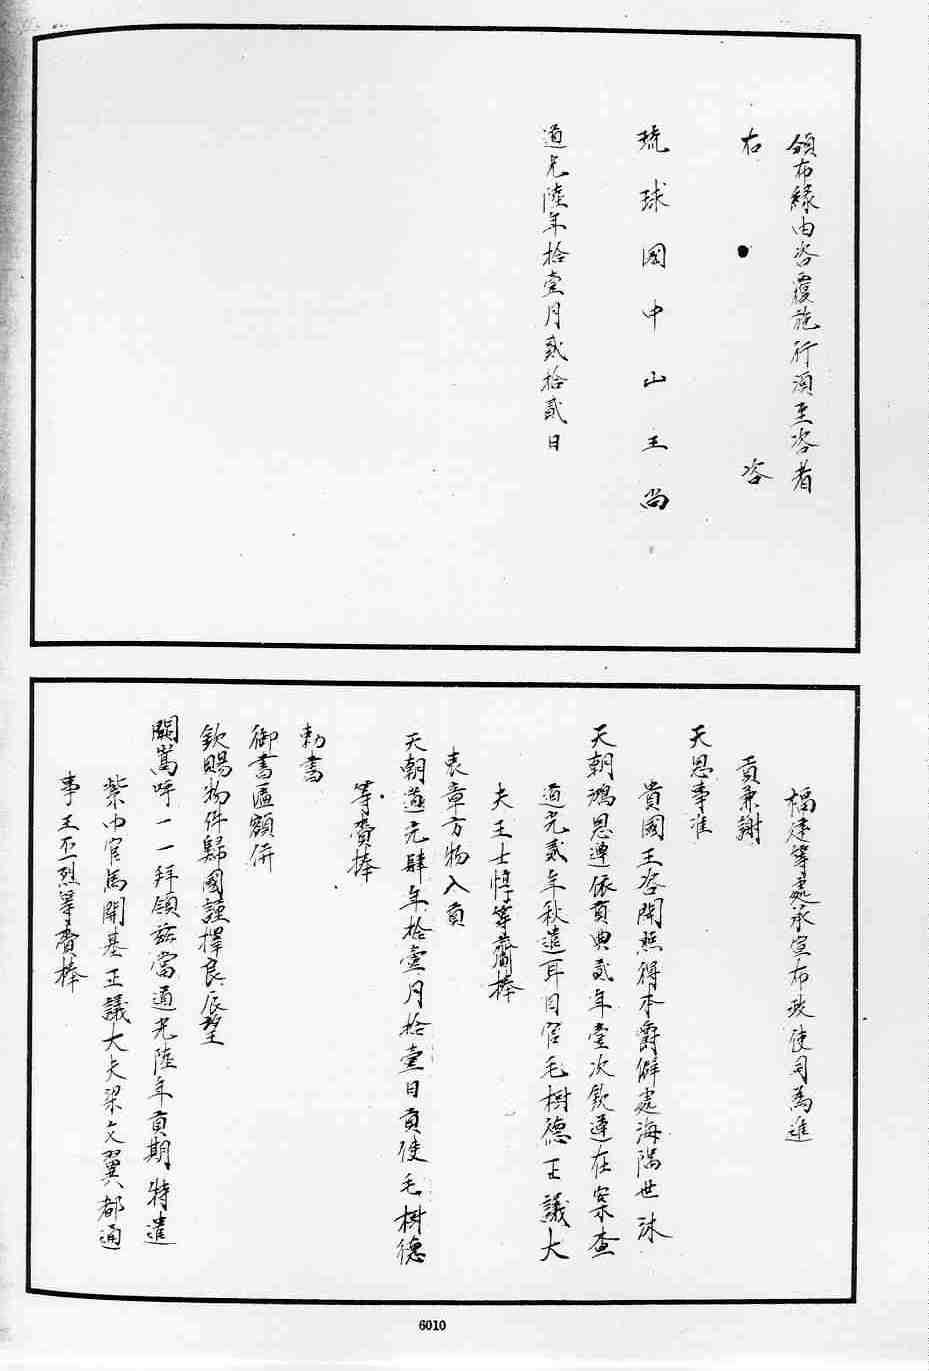 頒布緣由咨覆施行須至咨者
右 咨
琉球國中山王尚
道光陸年拾壹月貳拾貳日
福建等處承宣布政使司為進
貢兼謝
天恩事准
貴國王咨開照得本爵僻處海隅世沐
天朝鴻恩遵依貢典貳年壹次欽遵在案查
道光貳年秋遣耳目官毛樹德正議大
夫王士惇等齎捧
表章方物入貢
天朝道光肆年拾壹月拾壹日貢使毛樹德
等賫捧
勅書
御書匾額併
欽賜物件歸國謹擇良辰望
闕嵩呼一一拜領茲當道光陸年貢期特遣
紫巾官馬開基正議大夫梁文翼都通
事王丕烈等賫捧
6010